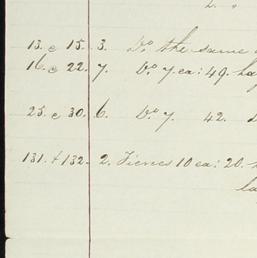 2. "
13. @ 15. 3. Do the same
16. @ 22. 7. Do 7 ea: 49.
25. @ 30. 6. Do 7. 42.
131. + 132. 2. Tierces 10 ea: 20.